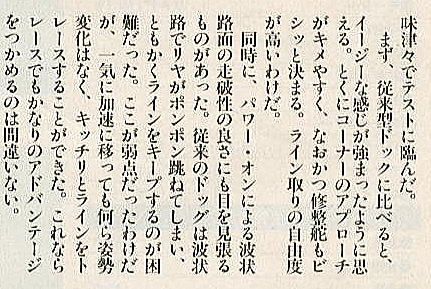 味津々でテストに臨んだ。
　まず、従来型ドックに比べると、
イージーな感じが強まったように思
える。とくにコーナーのアプローチ
がキメやすく、なおかつ修整舵もビ
シッと決まる。ライン取りの自由度
が高いわけだ。
　同時に、パワー・オンによる波状
路面の走破性の良さにも目を見張る
ものがあった。従来のドッグは波状
路でリヤがポンポン跳ねてしまい、
ともかくラインをキープするのが困
難だった。ここが弱点だったわけだ
が、一気に加速に移っても何ら姿勢
変化はなく、キッチリとラインをト
レースすることができた。これなら
レースでもかなりのアドバンテージ
をつかめるのは間違いない。